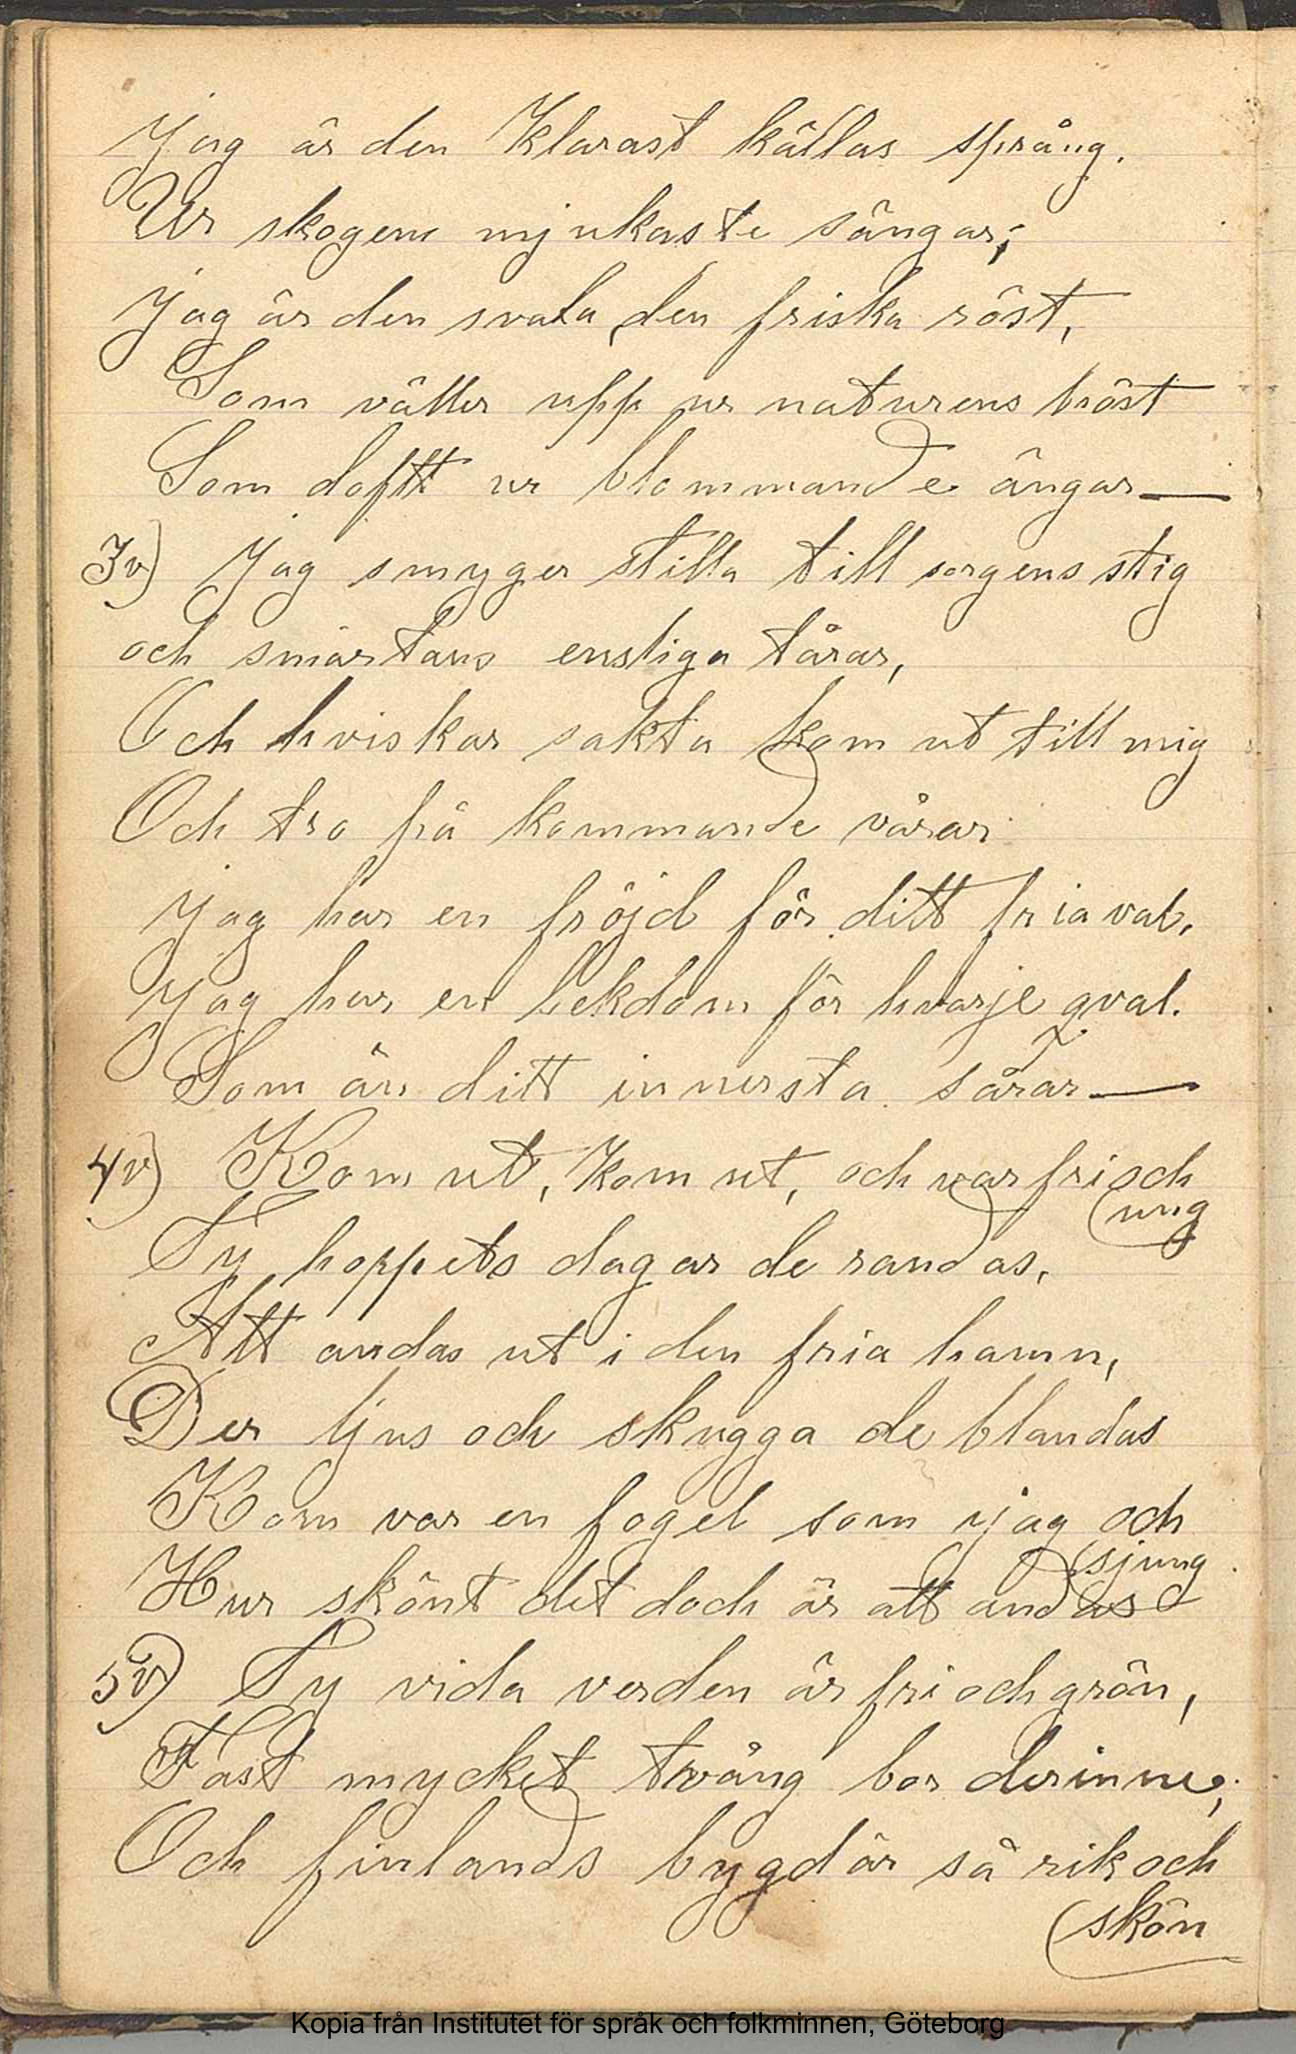 Jag är den klarast källas språng.
Ur skogens mjukaste sångar;
Jag är den svala, den friska röst,
Som väller upp ur naturens bröst
Som doftt ur blommande ängar—
3v) Jag smyger stilla till sorgens stig
och smärtans ensliga tårar,
Och hviskar sakta kom ut till mig
Och tro på kommande vårar
jag har en fröjd för ditt fria val.
Jag har en lekdom för hvarje qval.
Som än ditt innersta sårar—
4v) Kom ut, kom ut, och var fri och
(ung
Ty hoppets dagar de randas.
Att andas ut i den fria hamn,
Der ljus och skugga de blandas
Kom var en fogel som jag och
(sjung
Hur skönt det doch är att andas
5v) Ty vida verden är fri och grön,
Fast mycket tvång bor derinne;
Och finlands bygd är så rik och
(skön
Kopia från Institutet för språk och folkminnen, Göteborg